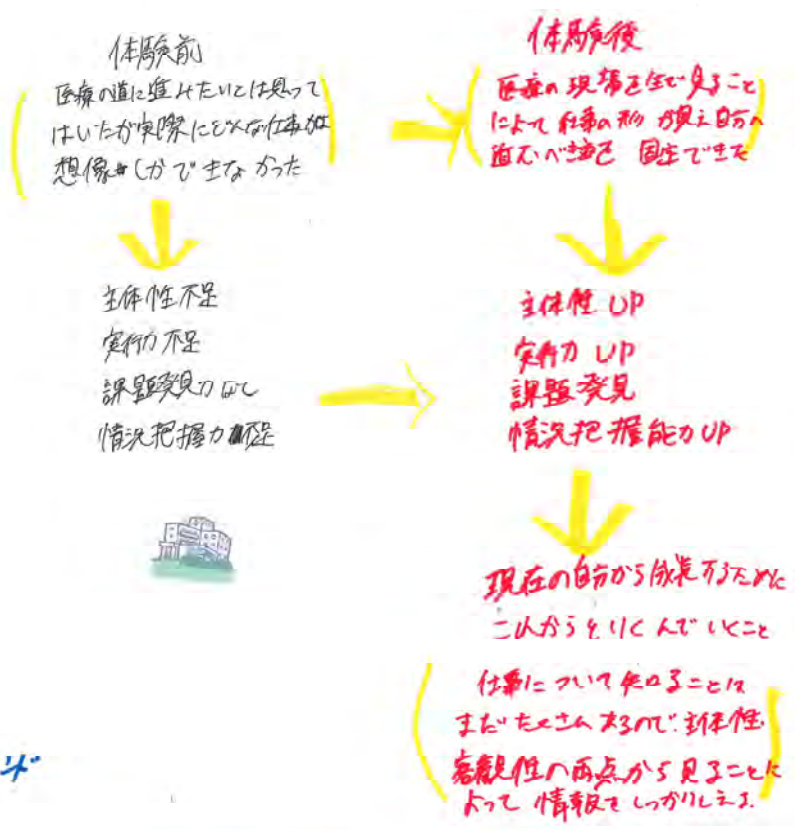 体験前
医療の道に進みたいとは思って
はいたが実際にどんな仕事かは
想像しかできなかった
主体性不足
実行力不足
課題発見力なし
情況把握力不足
体験後
医療の現場を生で見ること
によって仕事の形が見え自分の
進むべき道を固定できた
主体性UP
実行力UP
課題発見
情況把握能力UP
現在の自分から成長するために
これからとりくんでいくこと
仕事について知ることは
まだたくさんあるので、主体性、
客観性の両点から見ることに
よって情報をしっかりとらえる。